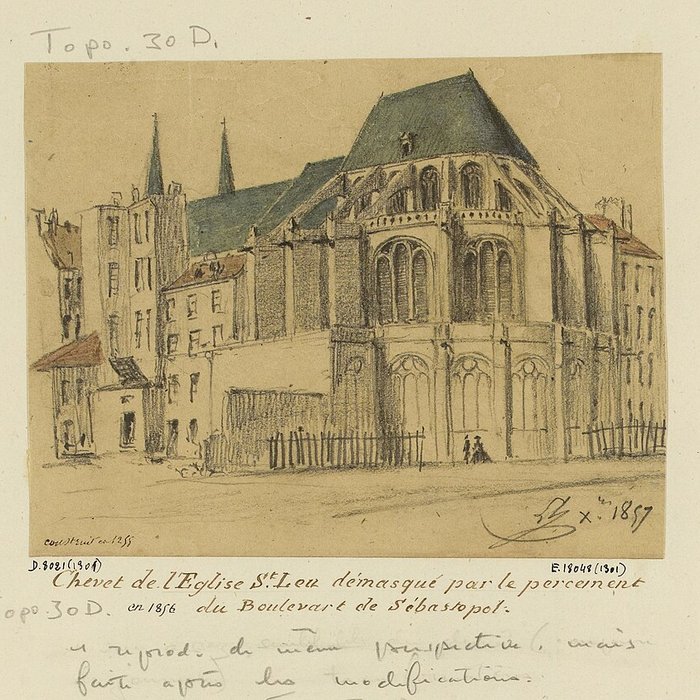 Topo. 30 D.
Xbre 1857
construit en 1255
D.8021(1304)
E.18048(1301)
Chevet de l'Eglise St Leu démasqué par le percement
en 1856 du Boulevart de Sébastopol.
Topo. 30 D.
reprod. de même perspective, mais
faite après les modifications.